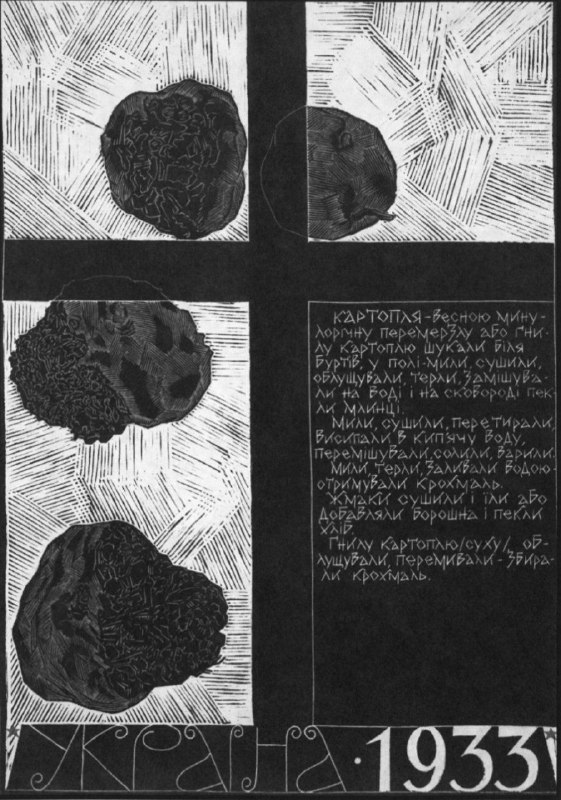 картопля - весною мину-
лорічну перемерзлу або гни-
лу картоплю шукали біля
буртів, у полі. мили, сушили,
облущували, терли, замішува-
ли на воді і на сковороді пек-
ли млинці.
Мили, сушили, перетирали,
висипали в кип'ячу воду,
перемішували, солили, варили.
Мили, терли, заливали водою-
отримували крохмаль.
Жмаки сушили і їли або
добавляли борошна і пекли
хліб.
Гнилу картоплю/суху/, об-
лущували, перемивали - збира-
ли крохмаль.
УКРАЇНА · 1933